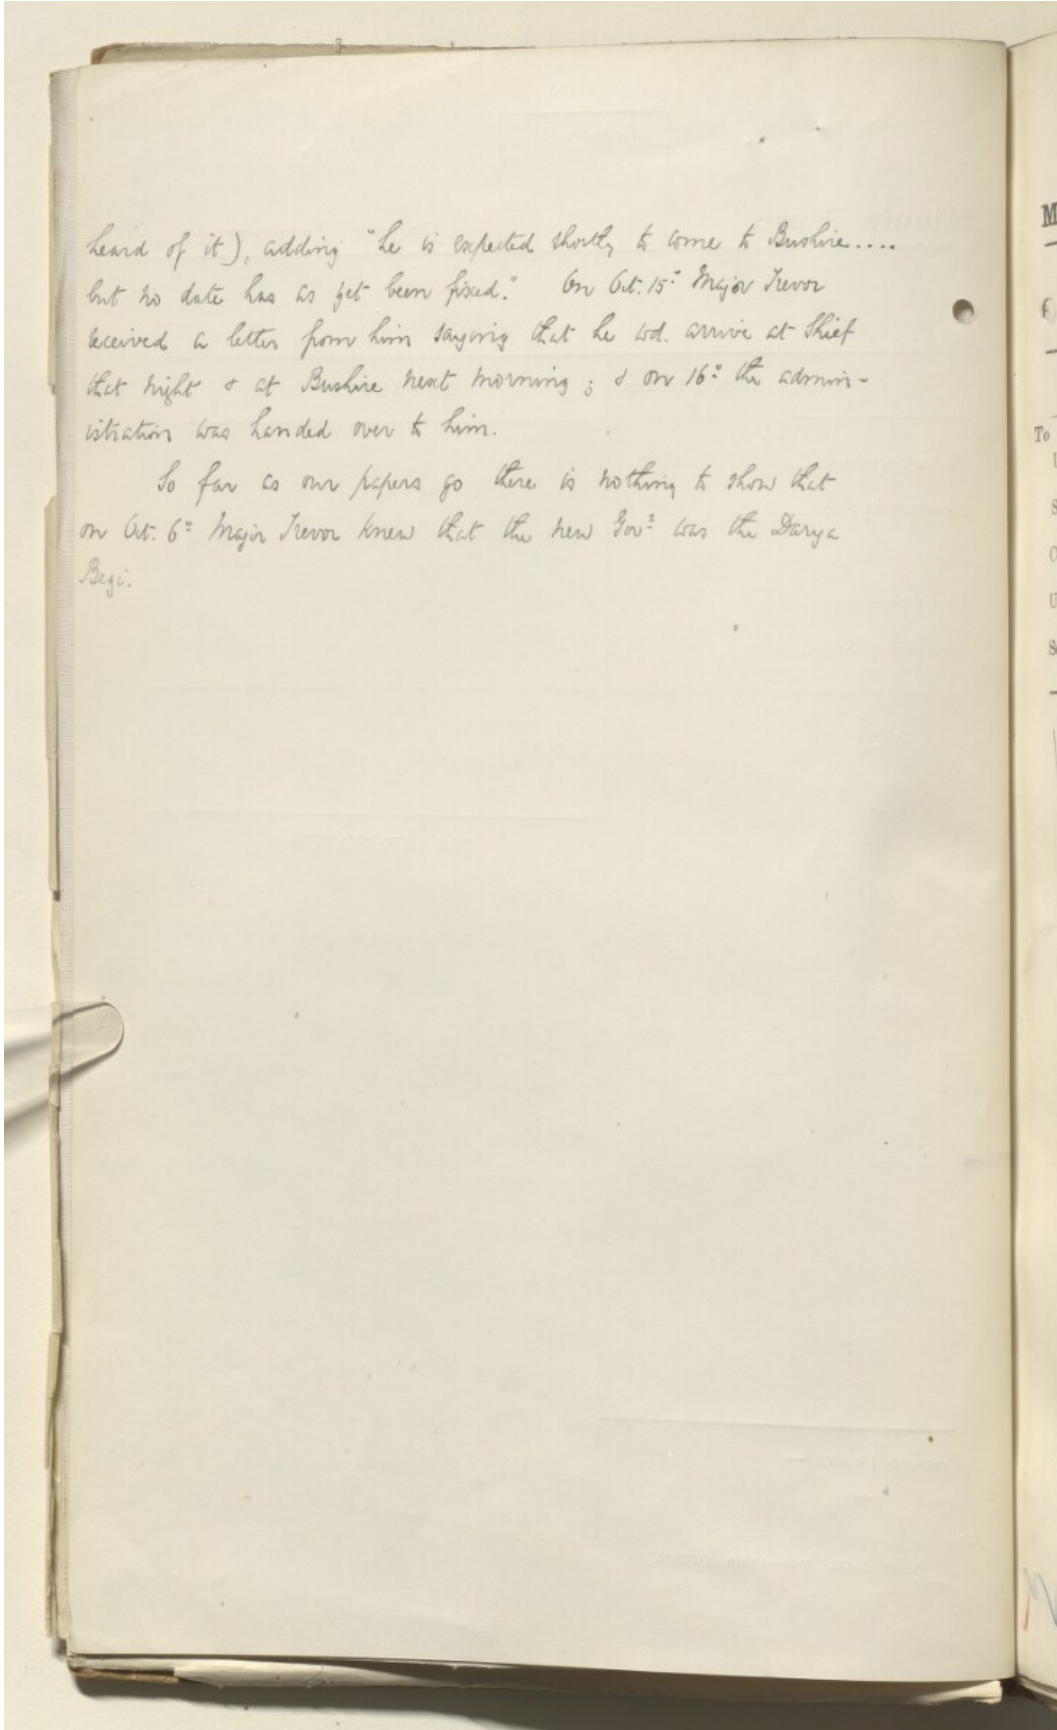 heard of it), adding "he is expected shortly to come to Bushire....
but no date has as yet been fixed." On Oct. 15th Major Trevor
received a letter from him saying that he wd. arrive at Shief
that night & at Bushire next morning; & on 16th the admin-
istration was handed over to him.
So far as our papers go there is nothing to show that
on Oct. 6th Major Trevor knew that the new Govr was the Darya
Begi.
M
To